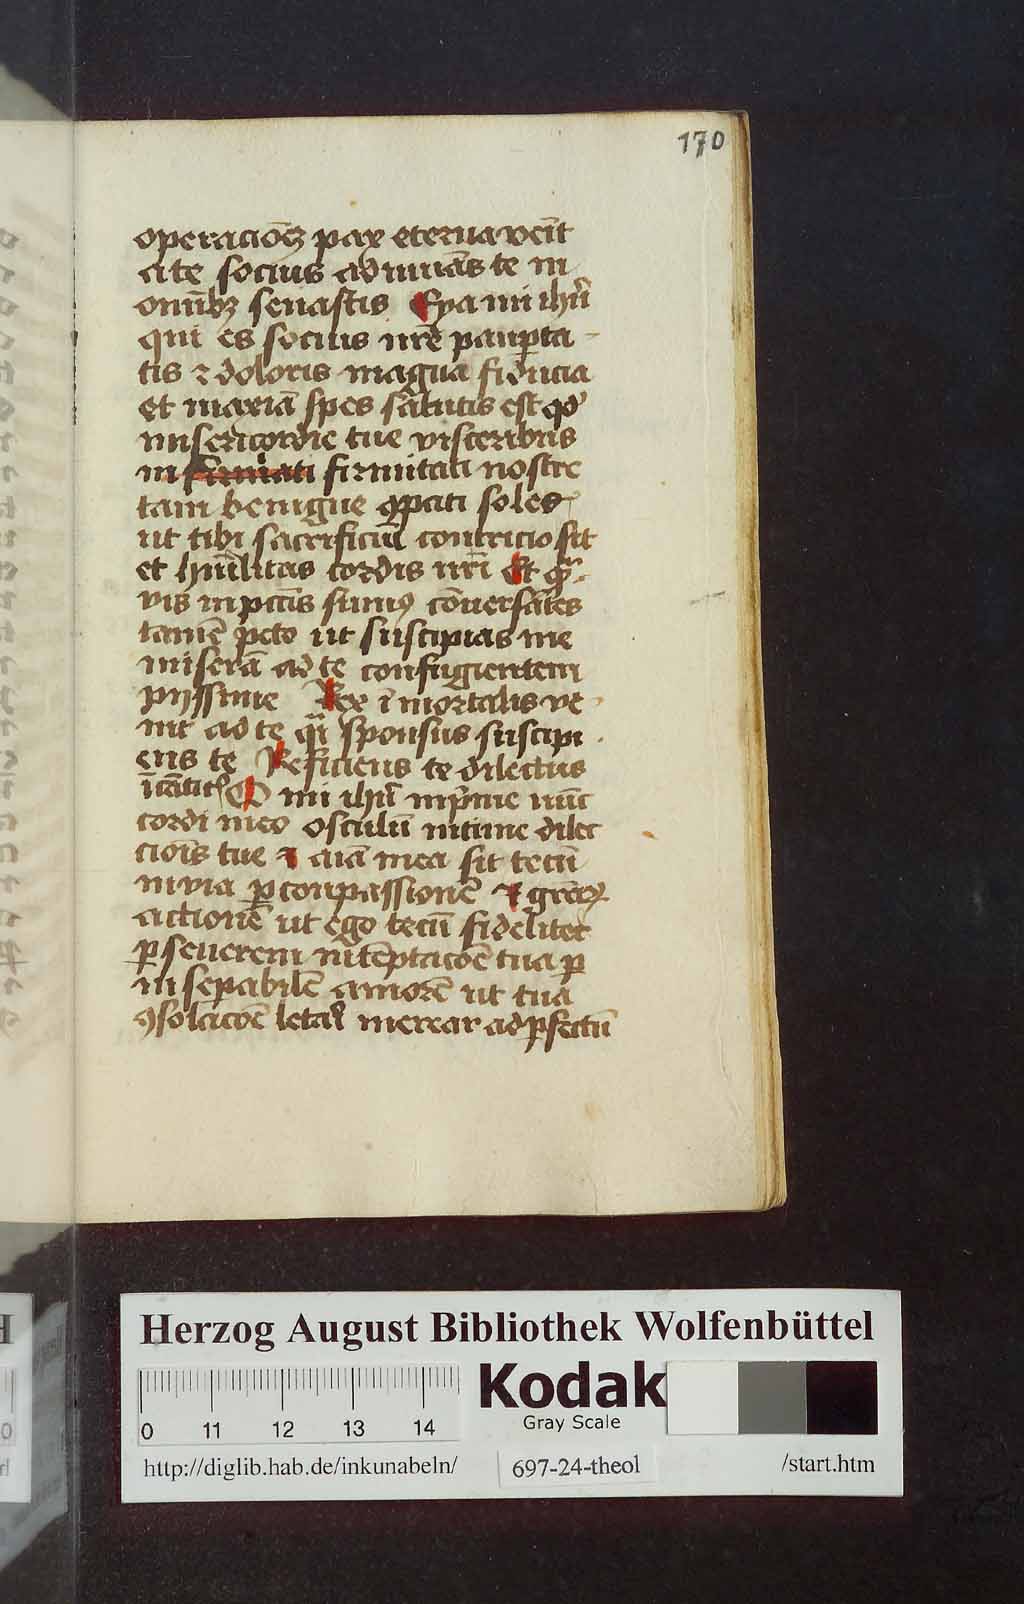 170
operacioēꝫ pax eterna veīt
a te socius adiuuās te in
om̄ibꝫ Eya mi ihū
qui es socius nr̄e paup̄ta
tis ⁊ doloris magna fiducia
et maxīa spes salutis est qd'
misericordie tue visceribus
in firmitati nostre
tam benigne ꝯpati soles
ut tibi sacrificiū contricio sit
et hūilitas cordis nr̄i Et qᷓ
vis in pctīs sumꝰ cōuersātes
tamē p̄cto ut suscipias me
miserā ad te confugientem
pijssime Rex ī mortalis ve
nit ad te qͣi sponsus suscipi
ens te Reficiens te dilectus
O mi ihū inp̄me nūc
cordi meo osculū intime dilec
ciois tue ⁊ aīa mea sit tecū
in via ꝑ conpassionē ⁊ grāꝝ
actionē ut ego tecū fideliter
ꝑseuerem in tēptacōe tua ꝑ
in sepabilē amorē ut tua
ꝯsolacōe letaꝛ merear ad ꝑfectū
Herzog August Bibliothek Wolfenbüttel
Kodak
Gray Scale
0 11 12 13 14
http://diglib.hab.de/inkunabeln/ 697-24-theol /start.htm